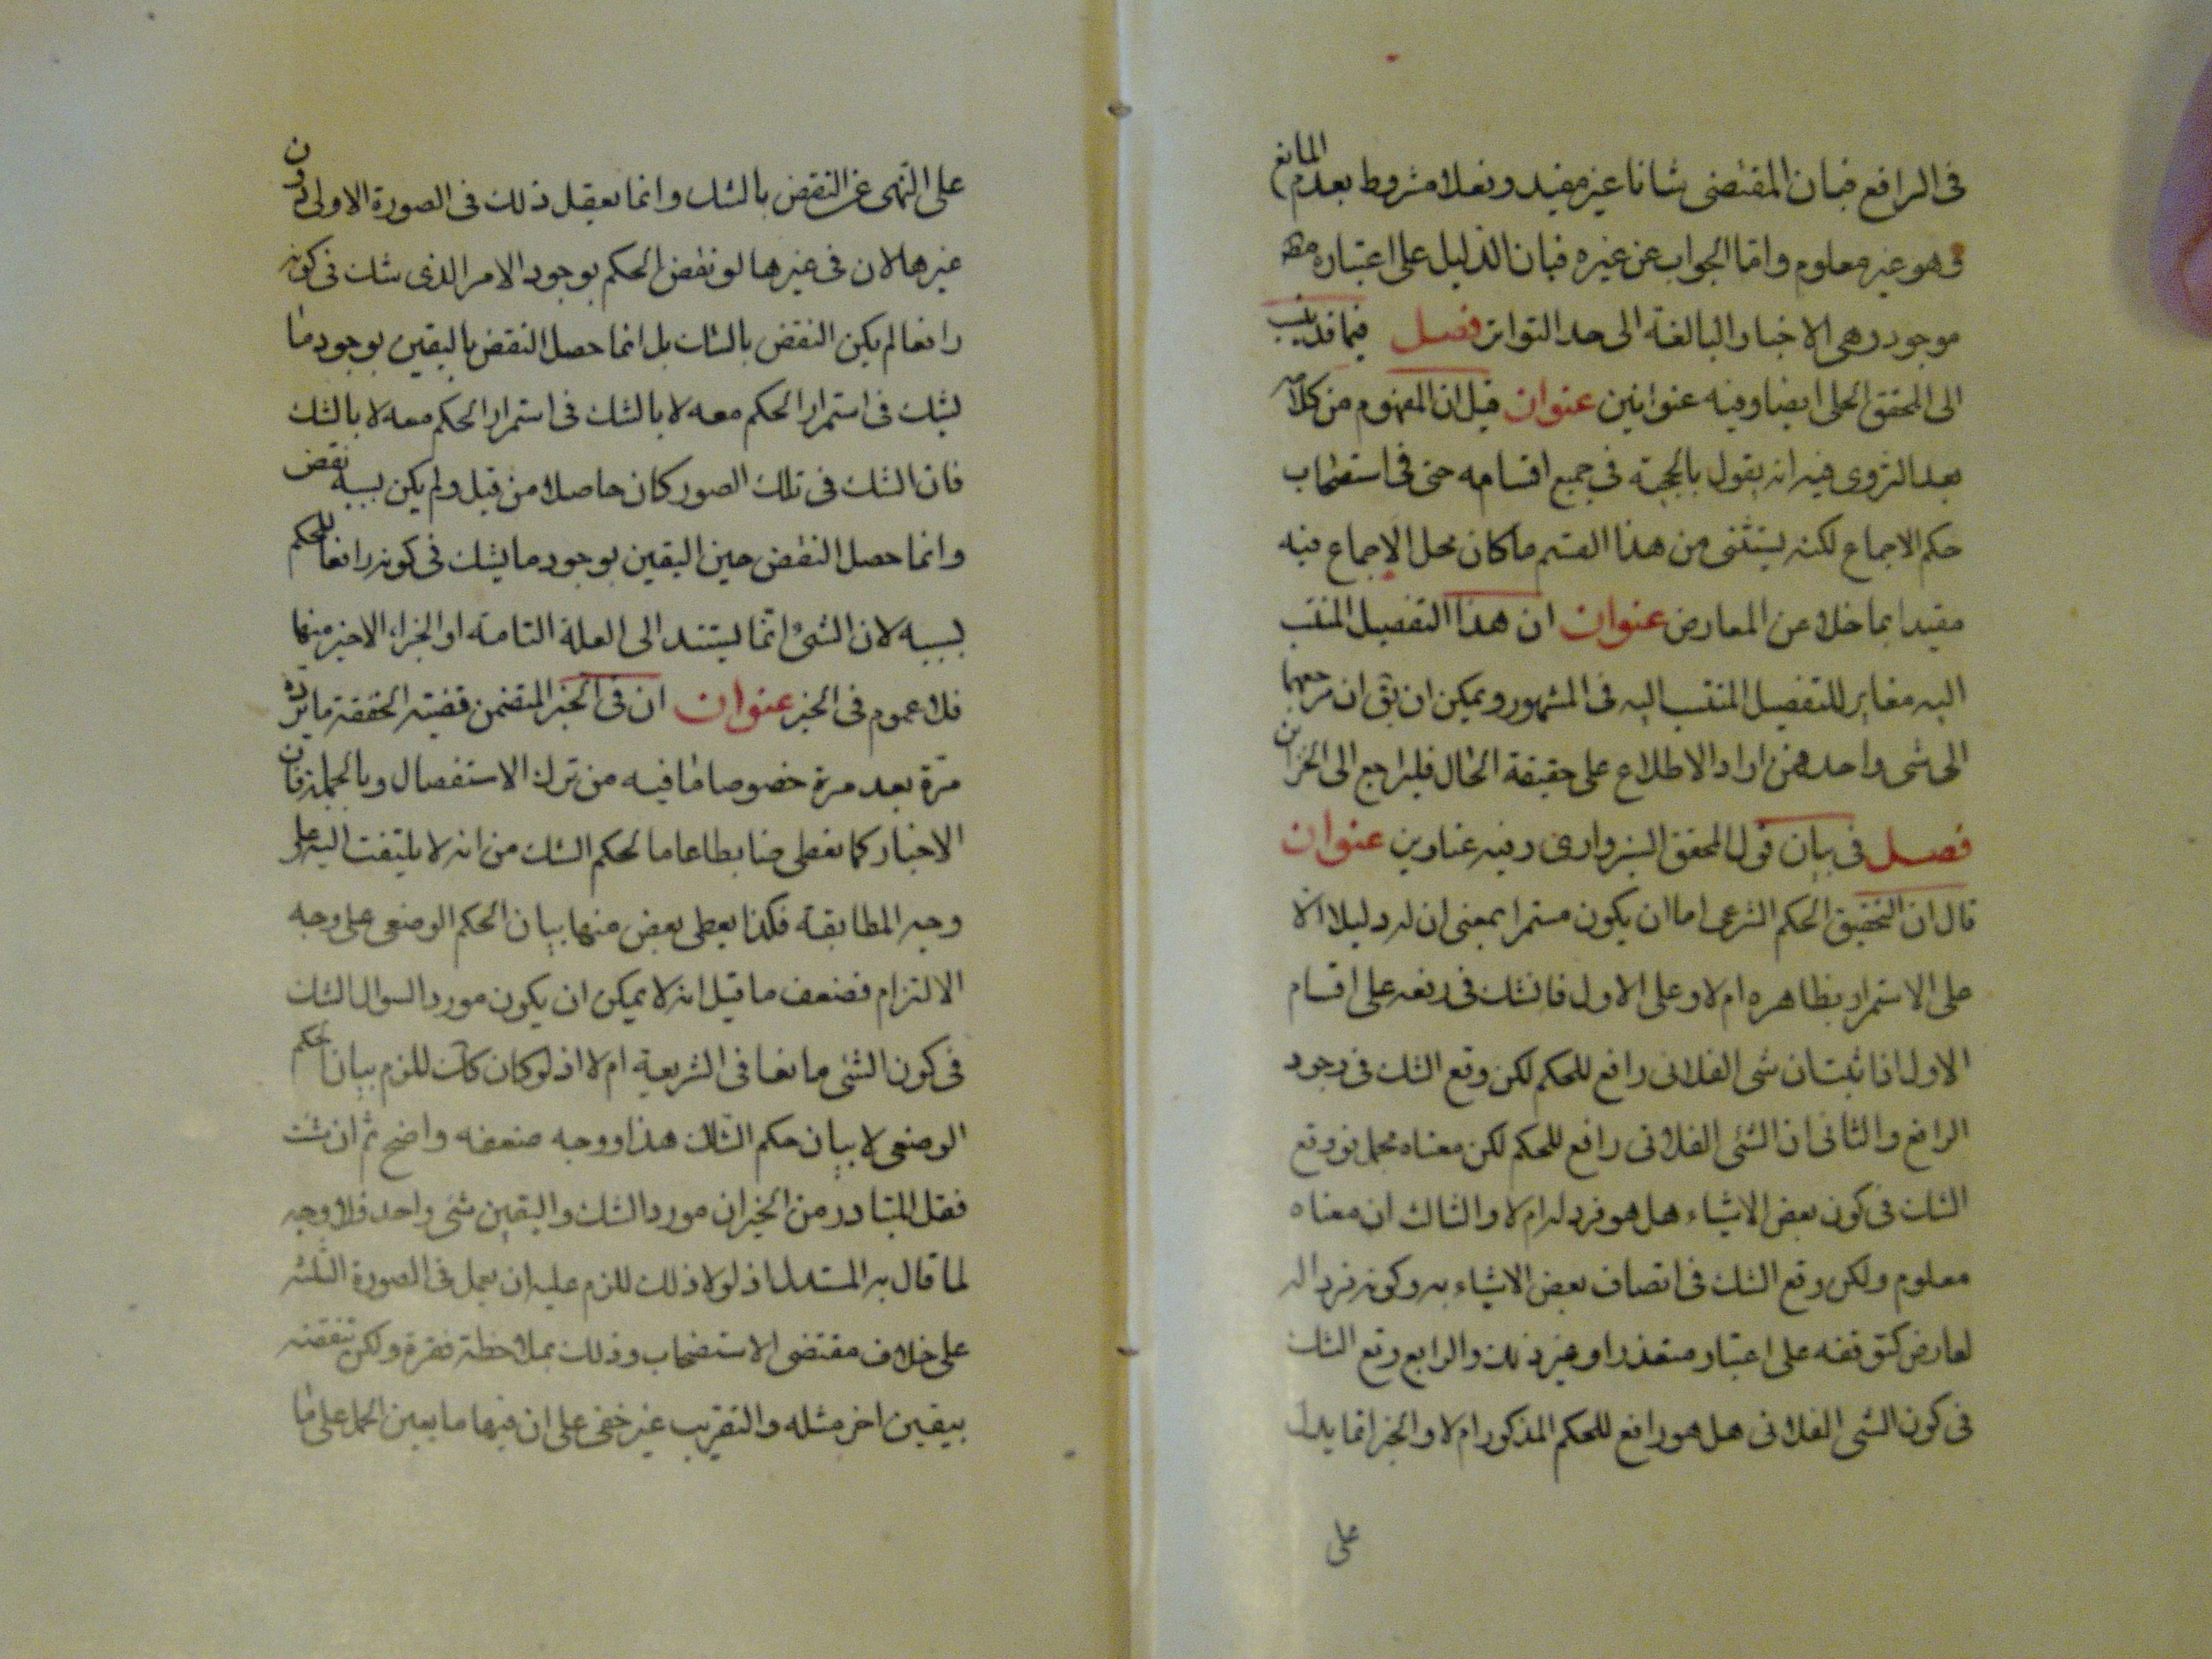 فى الرافع فبان المقتضى شانا غير مفيد وفعلا مشروط بعدم المانع
وهو غير معلوم واما الجواب عن غيره فبان الدليل على اعتباره مط
موجود وهى الاخبار البالغة الى حد التواتر فصل فيما قد ينسب
الى المحقق الحلى ايضا وفيه عنوانين عنوان قيل ان المفهوم من كلامه
بعد التروى فيه انه يقول بالحجية فى جميع اقسامه حتى فى استصحاب
حكم الاجماع لكنه يستثنى من هذا القسم ما كان محل الاجماع فيه
مقيدا بما خلا عن المعارض عنوان ان هذا التفصيل المنتسب
اليه مغاير للتفصيل المنتسب اليه فى المشهور ويمكن ان يق ان مرجعهما
الى شى واحد فمن اراد الاطلاع على حقيقة الحال فليراجع الى الخزاين
فصل فى بيان قول المحقق السبزوارى وفيه عناوين عنوان
قال ان التحقيق الحكم الشرعى اما ان يكون مستمرا بمعنى ان له دليلا دالا
على الاستمرار بظاهره ام لا وعلى الاول فالشك فى رفعه على اقسام
الاول اذا ثبت ان شى الفلانى رافع للحكم لكن وقع الشك فى وجود
الرافع والثانى ان الشئ الفلانى رافع للحكم لكن معناه مجمل فوقع
الشك فى كون بعض الاشياء هل هو فرد له ام لا والثالث ان معناه
معلوم ولكن وقع الشك فى اتصاف بعض الاشياء به وكونه فردا له
لعارض كتوقفه على اعتبار متعذر او غير ذلك والرابع وقع الشك
فى كون الشى الفلانى هل هو رافع للحكم المذكور ام لا والخبر انما يدل
على
على النهى عن النقض بالشك وانما يعقل ذلك فى الصورة الاولى دون
غيرها لان فى غيرها لو نقض الحكم بوجود الامر الذى شك فى كونه
رافعا لم يكن النقض بالشك بل انما حصل النقض باليقين بوجود ما
يشك فى استمرار الحكم معه لا بالشك فى استمرار الحكم معه لا بالشك
فان الشك فى تلك الصور كان حاصلا من قبل ولم يكن بسببه نقض
وانما حصل النقض حين اليقين بوجود ما يشك فى كونه رافعا للحكم
بسببه لان الشئ انما يستند الى العلة التامة او الجزاء الاخير منها
فلا عموم فى الخبر عنوان ان فى الخبر المتضمن قضية الخفقة ما يرده
مرة بعد مرة خصوصا ما فيه من ترك الاستفصال وبالجملة فان
الاخبار كما تعطى ضابطا عاما لحكم الشك من انه لا يلتفت اليه على
وجه المطابقة فكذا يعطى بعض منها بيان الحكم الوضعى على وجه
الالتزام فضعف ما قيل انه لا يمكن ان يكون مورد السوال الشك
فى كون الشئ مانعا فى الشريعة ام لا اذ لو كان كك للزم بيان حكم
الوضعى لا بيان حكم الشاك هذا ووجه ضعفه واضح ثم ان شئت
فقل المتبادر من الخبر ان مورد الشك واليقين شئ واحد فلا وجه
لما قال به المستدل اذ لولا ذلك للزم عليه ان يعمل فى الصورة الثلثه
على خلاف مقتضى الاستصحاب وذلك بملاحظة فقرة ولكن تنقضه
بيقين اخر مثله والتقريب غير خفى على ان فيها ما يعين الحمل على ما